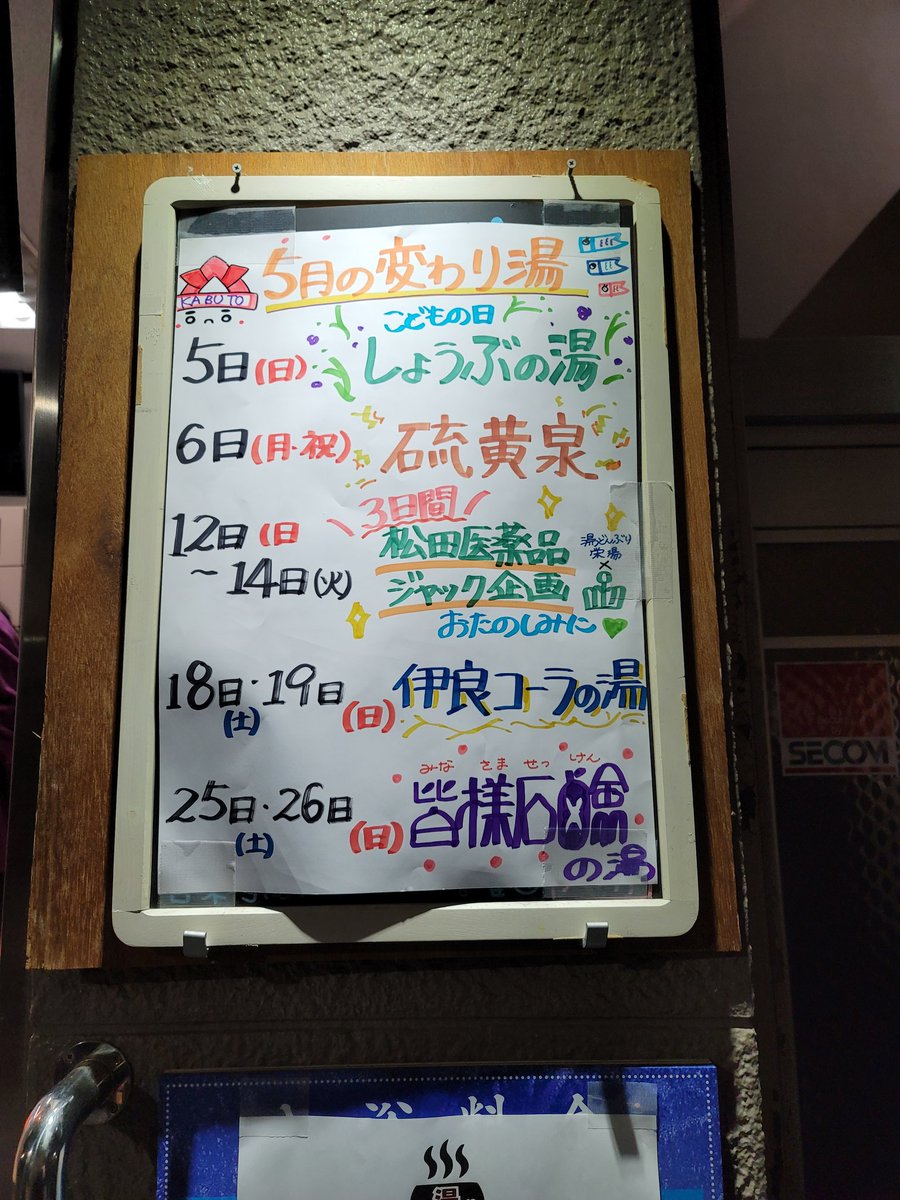 5月の変わり湯
KABUTO
こどもの日
5日(日) しょうぶの湯
6日(月・祝) 硫黄泉
12日(日
~14日(火)
3日間
松田医薬品
ジャック企画
おたのしみに
湯どんぶり
栄湯
×
18日・19日 伊良コーラの湯
(土) (日)
みな さま せっ けん
25日・26日 皆様石鹸
(土) (日) の湯
SECOM
湯